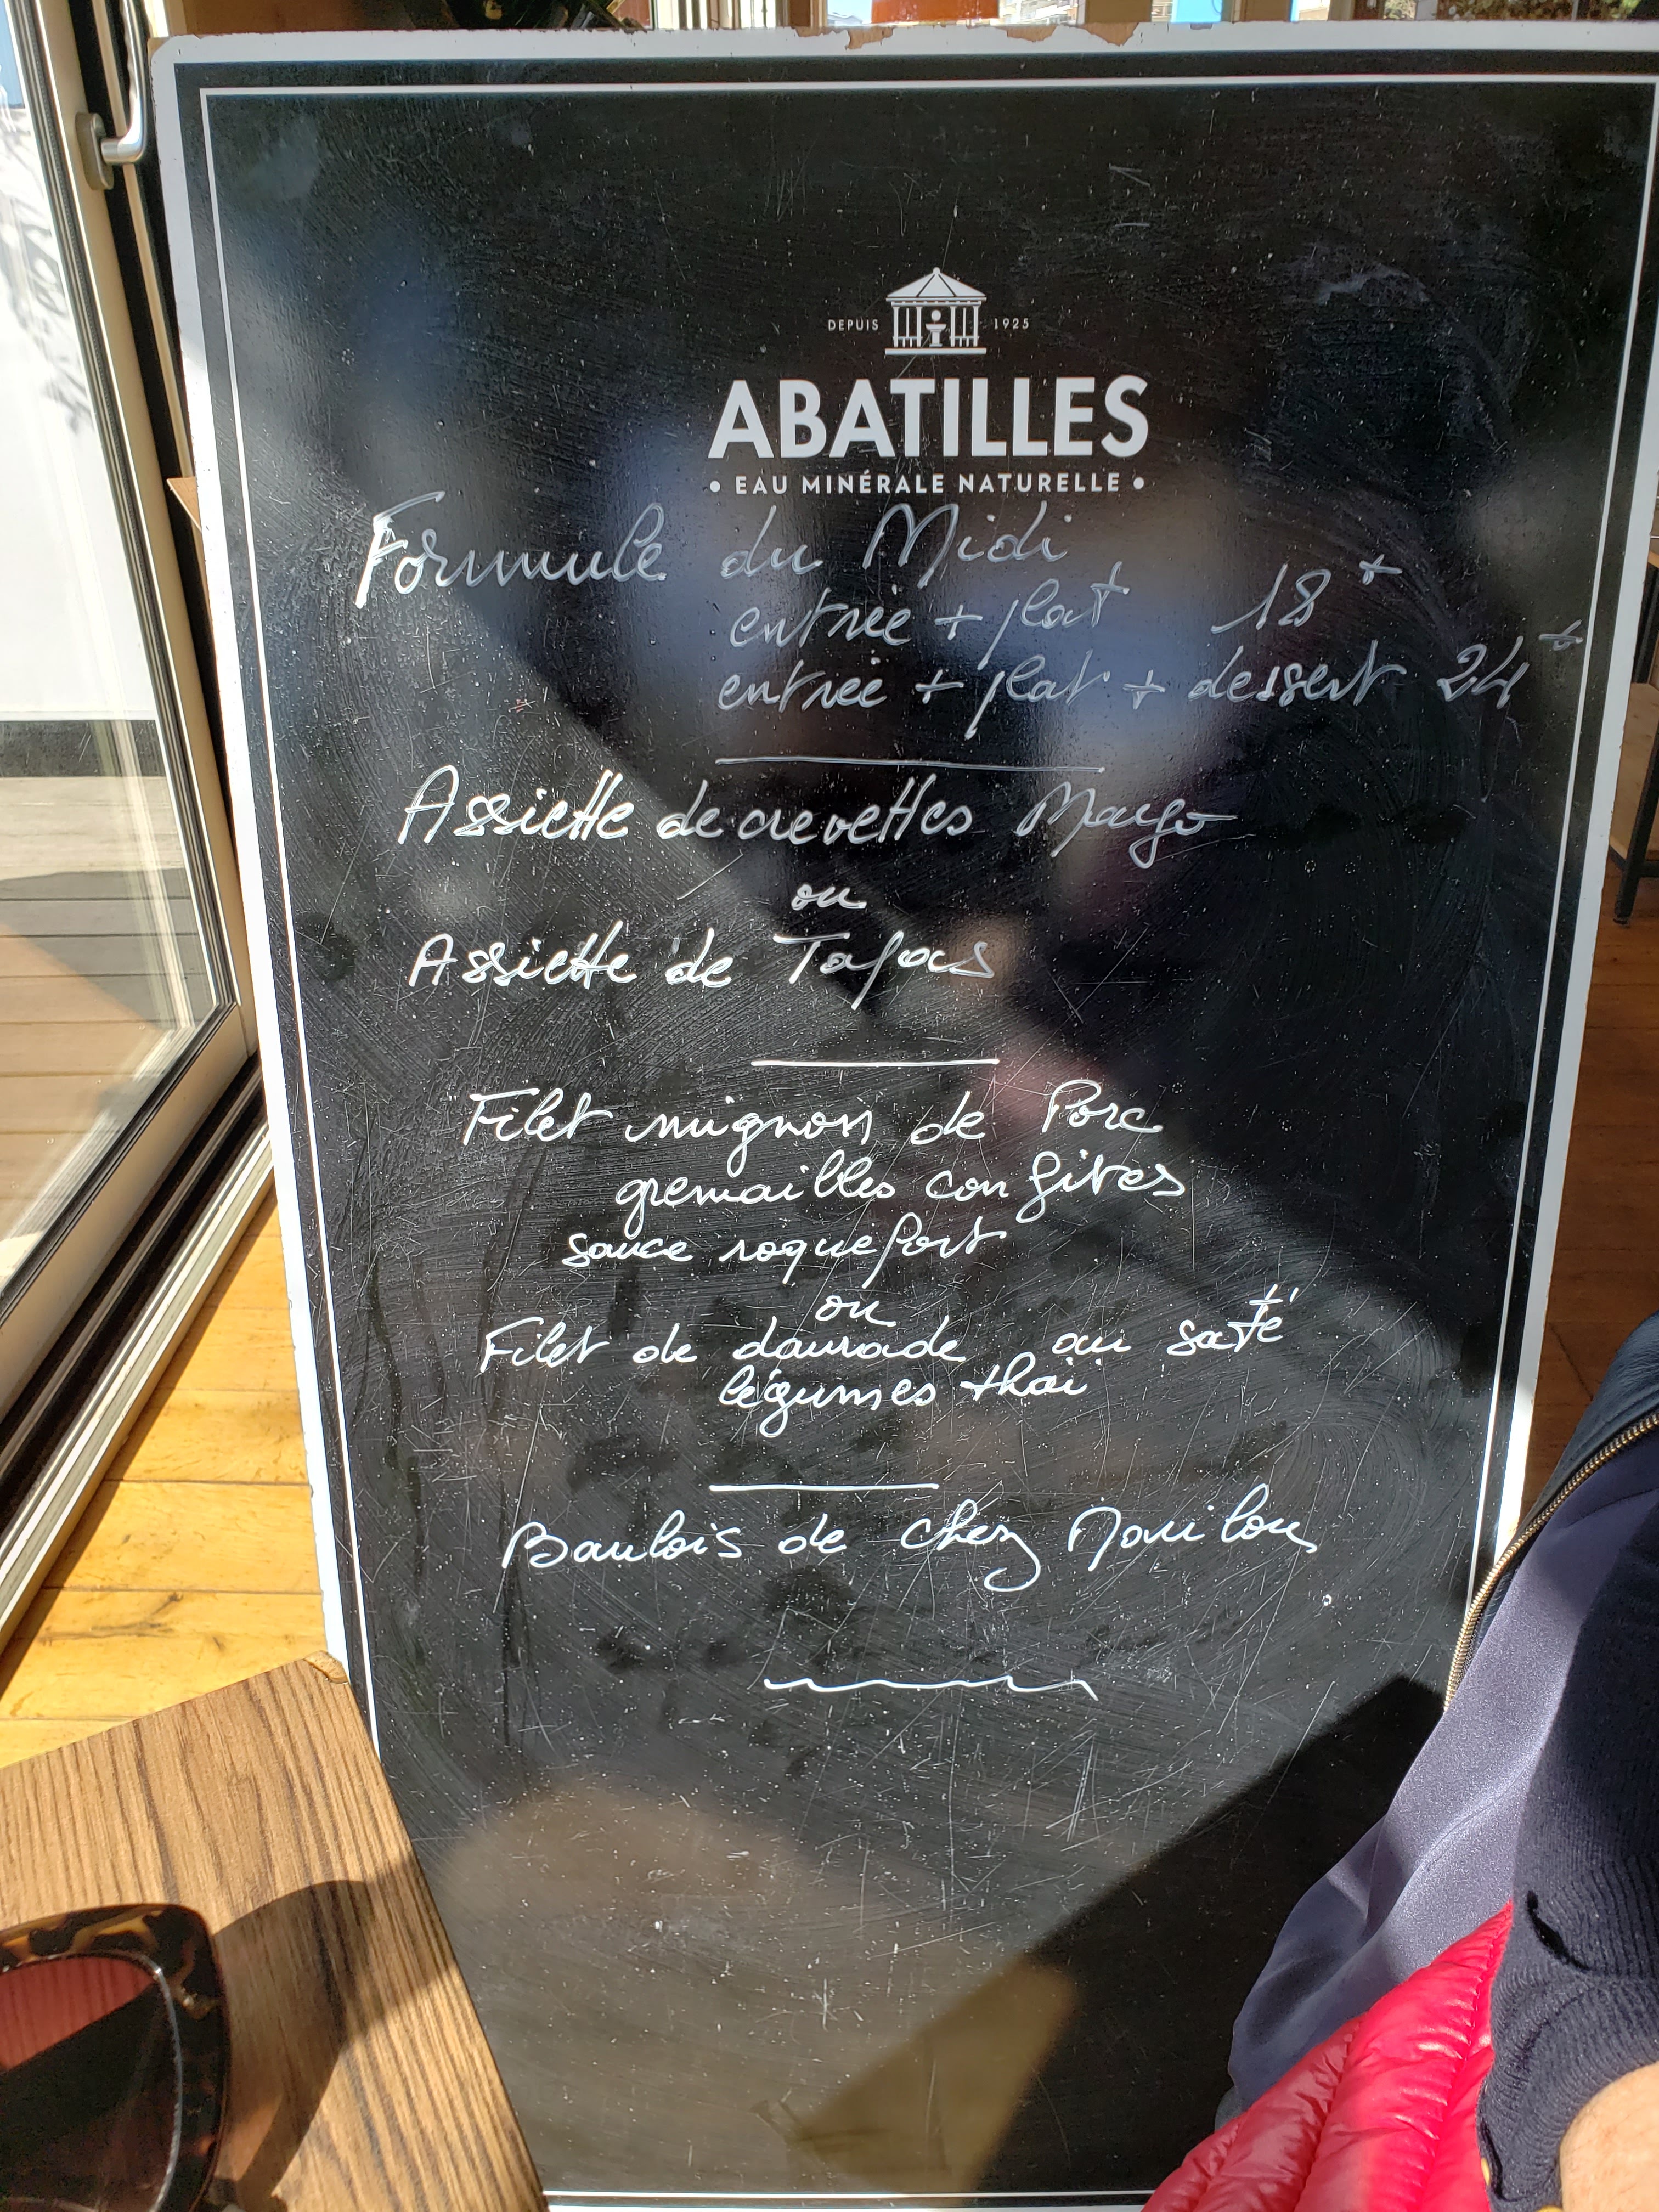 DEPUIS 1925
ABATILLES
• EAU MINÉRALE NATURELLE •
Formule du Midi
entrée + plat 18
entrée + plat + dessert 24
Assiette de crevettes Mayo
ou
Assiette de Tapas
Filet mignon de Porc
grenailles confites
sauce roquefort
ou
Filet de daurade au saté
légumes thaï
Baulois de chez